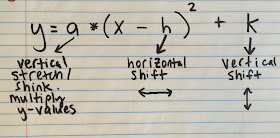 y = a * (x - h)² + k
vertical stretch/ shink. multiply y-values
horizontal shift
vertical shift